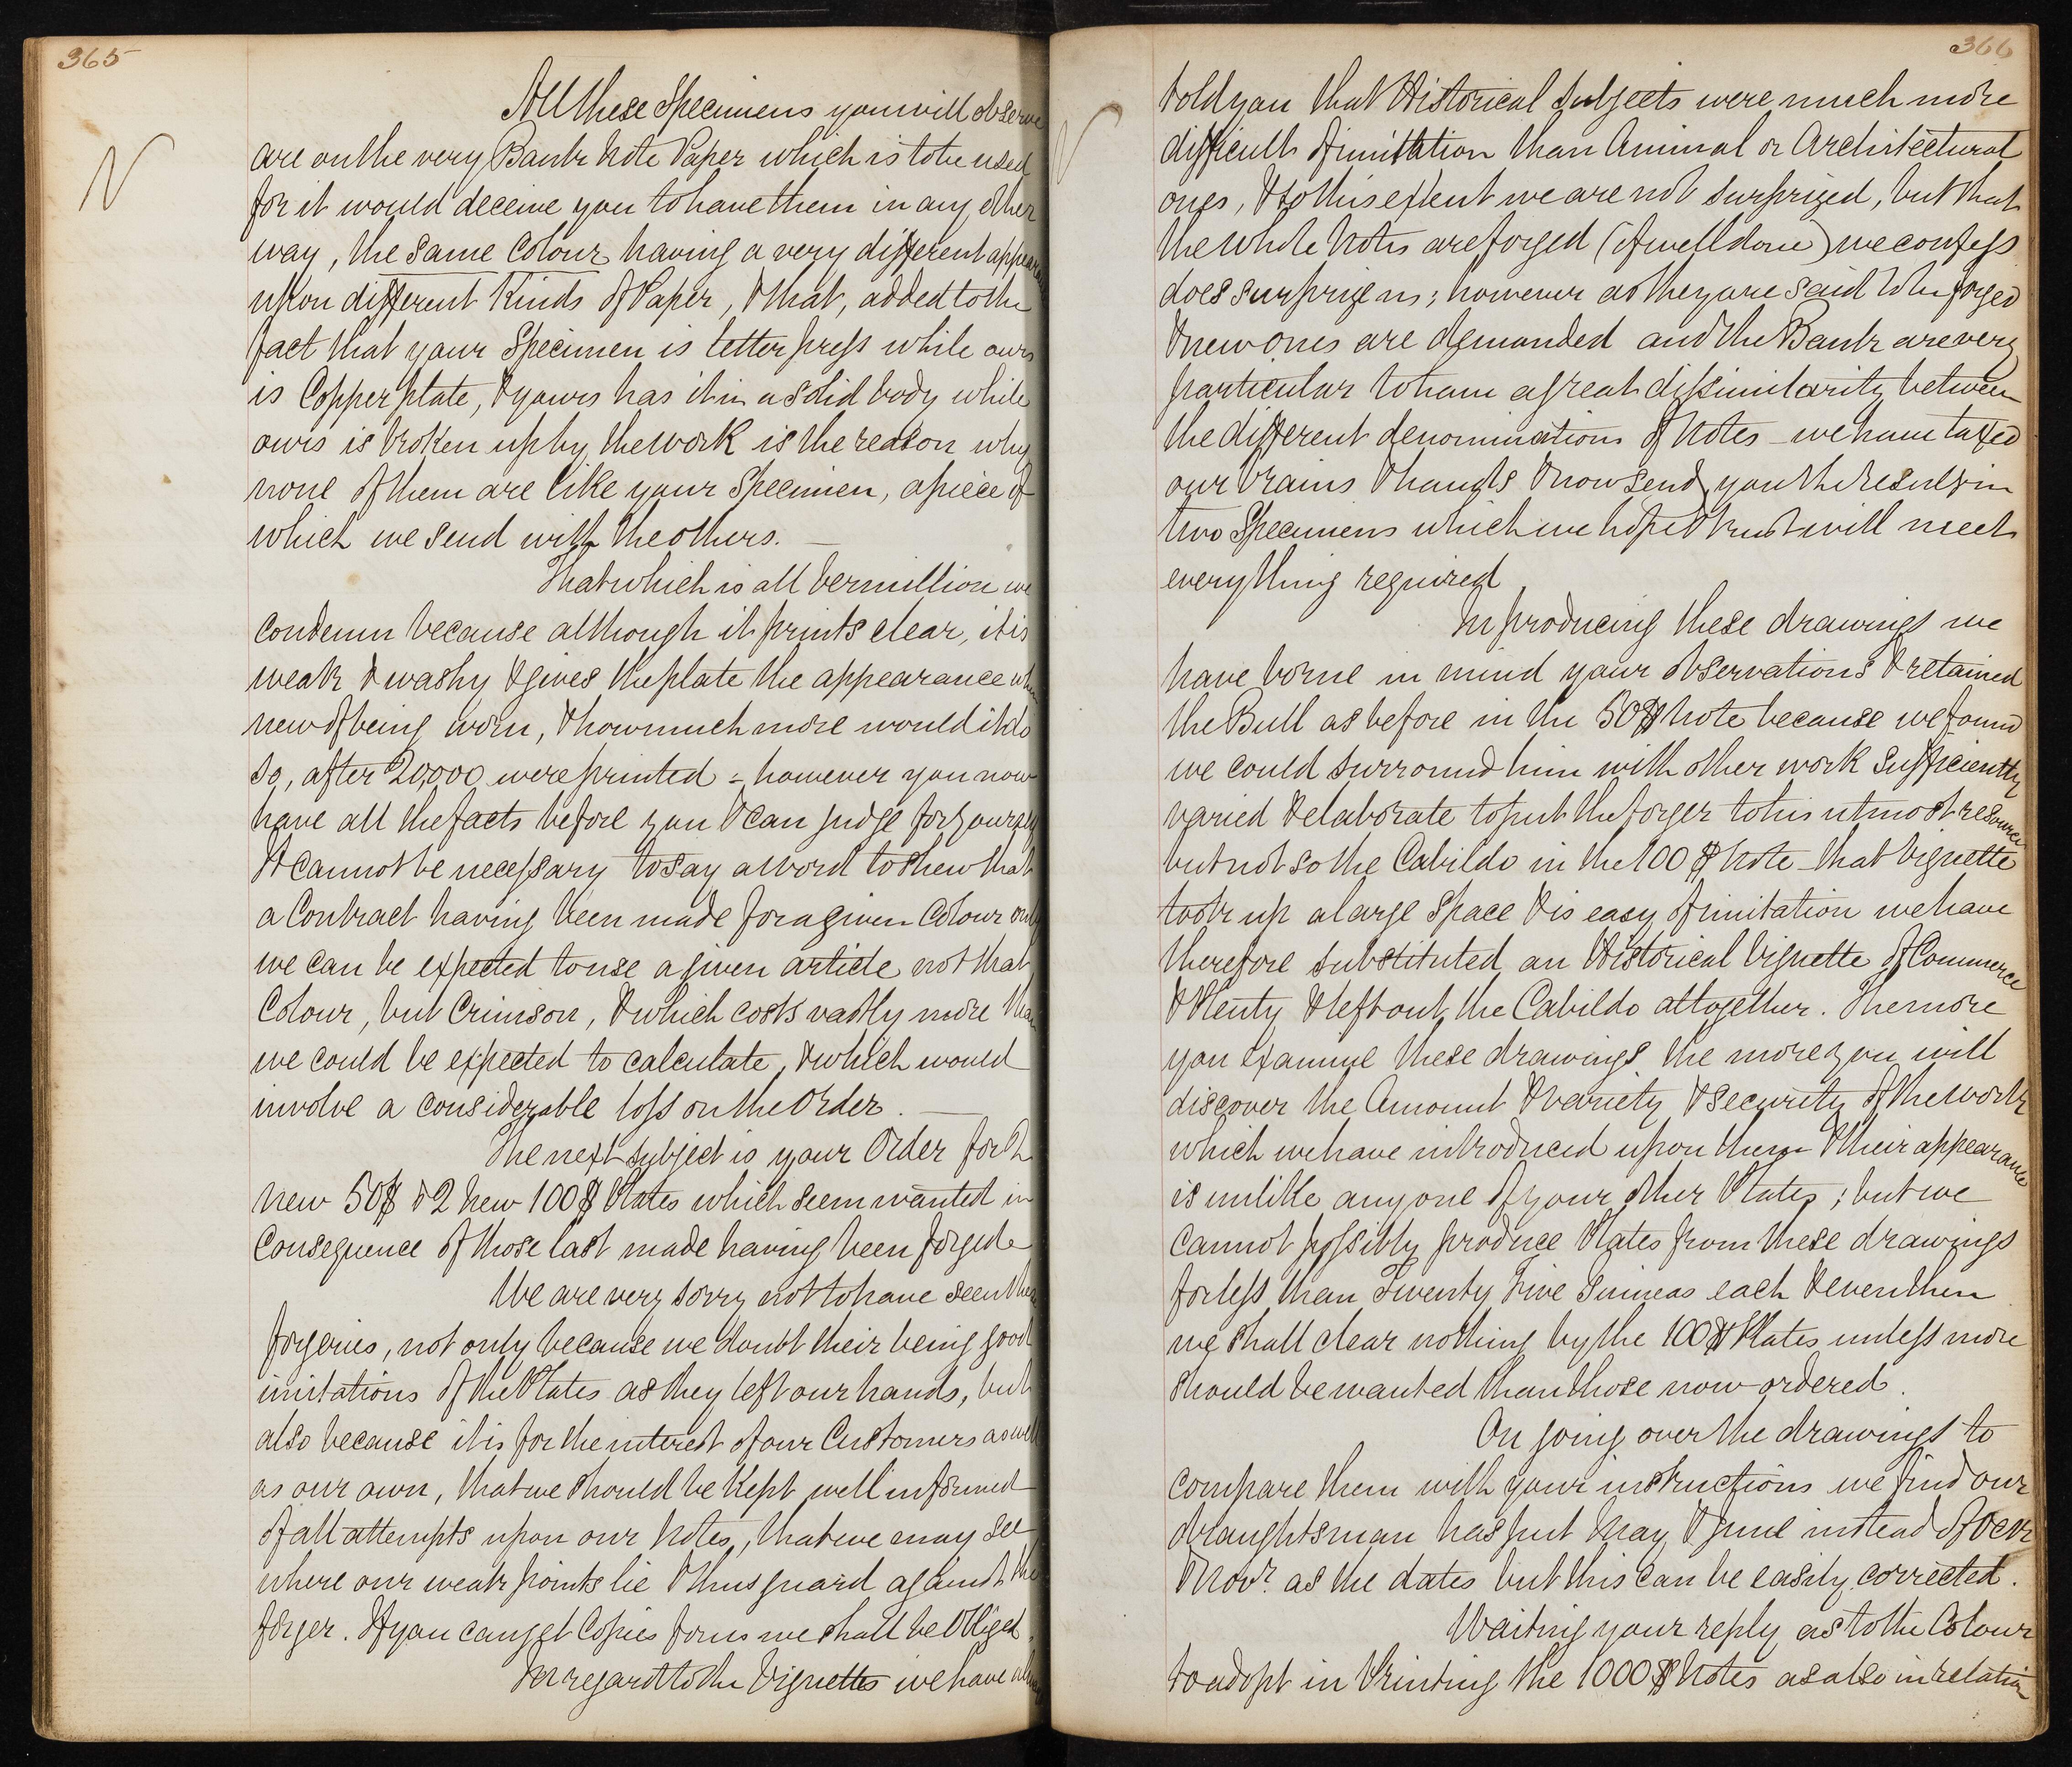 365
N
All these Specimens you will observe
are on the very Bank Note Paper which is to be used
for it would deceive you to have them in any other
way, the same colour having a very different appearance
upon different Kinds of Paper, & that, added to the
fact that your Specimen is letter press while ours
is Copper plate, & yours has it in a solid body while
ours is broken up by the work is the reason why
none of them are like your Specimen, a piece of
which we send with the others. —
That which is all Vermillion we
condemn because although it prints clear, it is
weak & washy & gives the plate the appearance when
new of being worn, & how much more would it do
so, after 20,000 were printed - however you now
have all the facts before you & can judge for yourself
It cannot be necessary to say a word to shew that
a Contract having been made for a given Colour only
we can be expected to use a given article not that
Colour, but Crimson, & which costs vastly more than
we could be expected to calculate, & which would
involve a considerable loss on the Order. —
The next subject is your Order for 2
new 50$ & 2 new 100$ Plates which seem wanted in
consequence of those last made having been forged
We are very sorry not to have seen these
forgeries, not only because we doubt their being good
imitations of the Plates as they left our hands, but
also because it is for the interest of our Customers as well
as our own, that we should be Kept well informed
of all attempts upon our Notes, that we may see
where our weak points lie & thus guard against the
forger. If you can get Copies for us we shall be Obliged.
In regard to the Vignettes we have always
366
N
told you that Historical Subjects were much more
difficult of imitation than Animal or Architectural
ones, & to this extent we are not surprized, but that
the whole Notes are forged (if well done) we confess
does surprize us; however as they are said to be forged
& new ones are demanded and the Bank are very
particular to have a great dissimilarity between
the different denominations of Notes - we have taxed
our brains & hands & now send you the result in
two Specimens which we hope & trust will meet
everything required
In producing these drawings we
have borne in mind your observations & retained
the Bull as before in the 50$ Note because we found
we could surround him with other work sufficiently
varied & elaborate to put the forger to his utmost resources
but not so the Cabildo in the 100$ Note - that Vignette
took up a large Space & is easy of imitation we have
therefore substituted an Historical Vignette of Commerce
& Plenty & left out the Cabildo altogether. The more
you examine these drawings the more you will
discover the Amount & variety & security of the work
which we have introduced upon them & their appearance
is unlike any one of your other Plates; but we
cannot possibly produce Plates from these drawings
for less than Twenty Five Guineas each & even then
we shall clear nothing by the 100$ Plates unless more
should be wanted than those now ordered.
On going over the drawings to
compare them with your instructions we find our
draughtsman has put May & June instead of Octr
& Novr. as the dates but this can be easily corrected.
Waiting your reply as to the Colour
to adopt in Printing the 1000$ Notes as also in relation